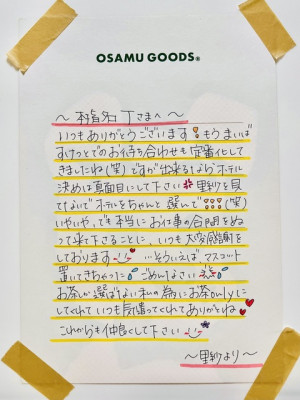 OSAMU GOODS®
～椎名 丁さまへ～
いつもありがとうございます！もうまいど
すけっとでのお待ち合わせも定番化して
きましたね(笑)ですが出来るならホテル
決めは真面目にして下さい 里紗を見
けないでホテルをちゃんと選んで!!!(笑)
いやいや、でも本当にお仕事の合間をぬ
って来て下さることに、いつも大変感謝を
しております …そういえば、マスコット
置いてきちゃった ごめんなさい
お茶しか選ばない私の為にお茶onlyに
してくれていつも気遣ってくれてありがとね
これからも仲良くして下さい
～里紗より～